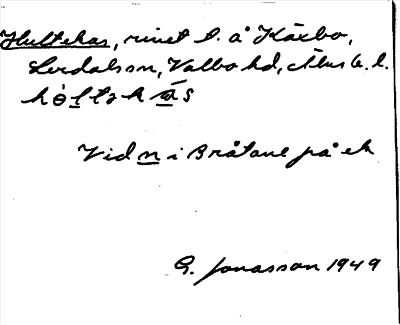 Hultekas, rinet t. å Kärbo,
Lerdals sn, Valbo hd, Älvsb. l.
hòltəkás
Vid n i Bråtane på ek
G. Jonasson 1949